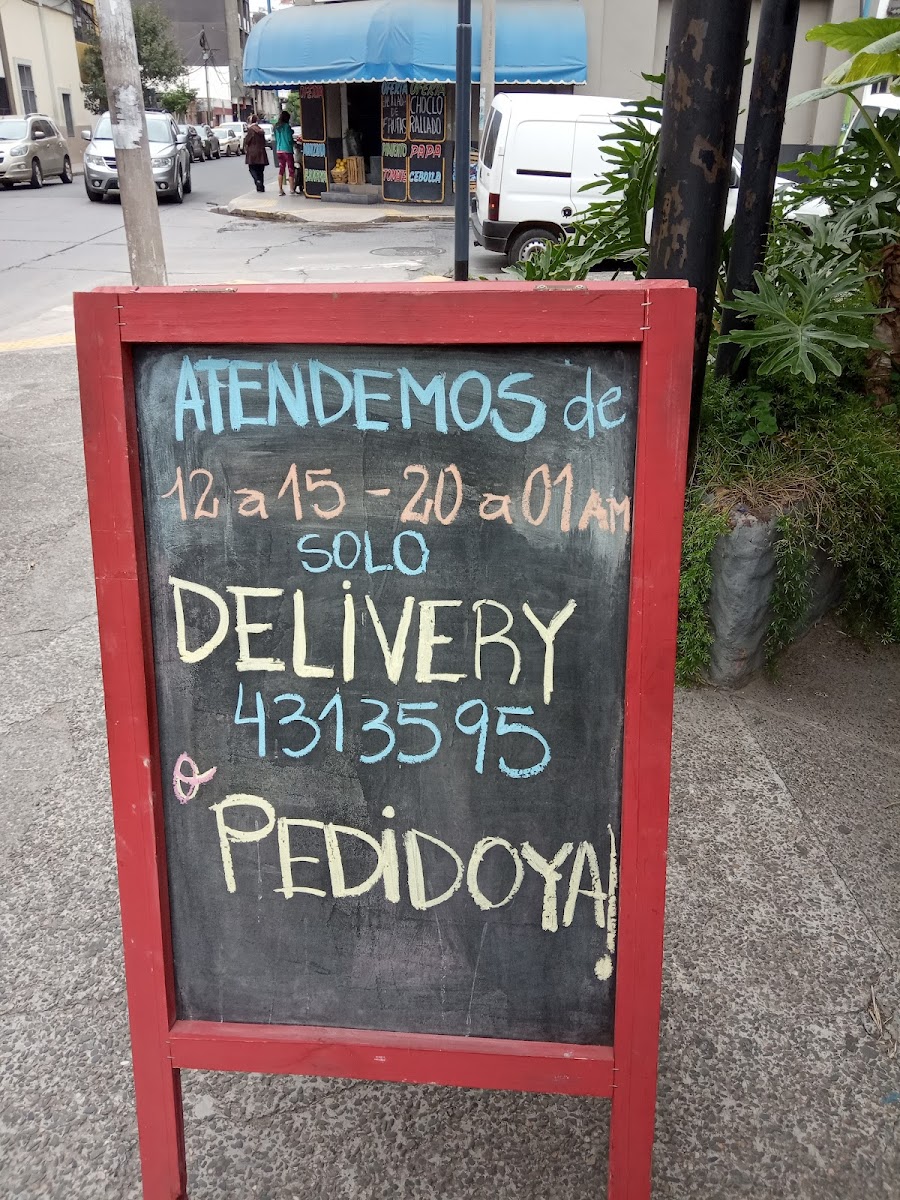 OFERTA
CHOCLO
RALLADO
PAPA
CEBOLLA
ATENDEMOS de
12 a 15 - 20 a 01 AM
SOLO
DELIVERY
4313595
o PEDIDOYA!